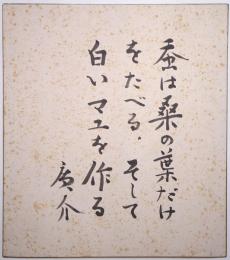 蚕は桑の葉だけ
をたべる、そして
白いマユを作る
廣介